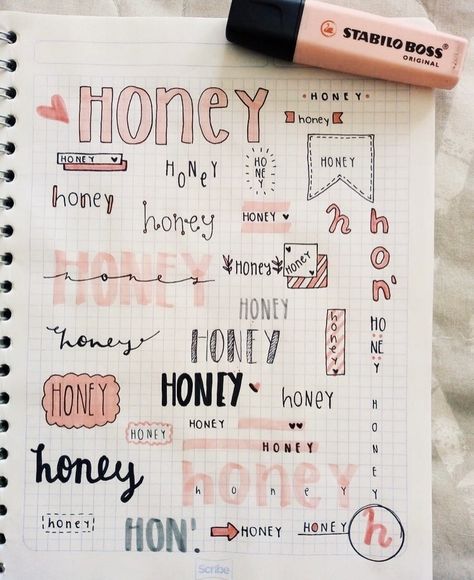 STABILO BOSS
ORIGINAL
HONEY
HONEY
honey
HONEY
HONEY
HO
NE
Y
HONEY
honey
honey
HONEY
h
h
o
n'
HONEY
honey
HONEY
HONEY
honey
HONEY
HO
NE
Y
honey
HONEY
HONEY
HONEY
honey
HONEY
HONEY
HONEY
HONEY
honey
honey
honey
HONEY
honey
HON'.
HONEY
HONEY
h
Scribe